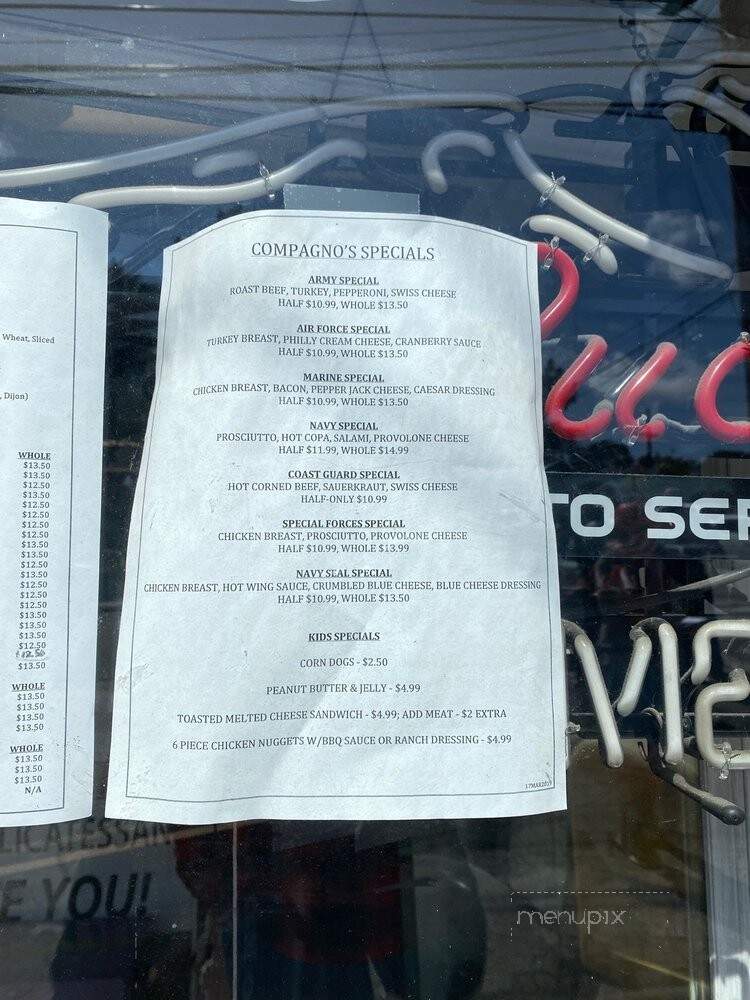 Wheat, Sliced
, Dijon)
WHOLE
$13.50
$13.50
$12.50
$13.50
$12.50
$12.50
$12.50
$12.50
$12.50
$13.50
$13.50
$12.50
$13.50
$12.50
$12.50
$12.50
$13.50
$13.50
$13.50
$12.50
$12.50
$13.50
WHOLE
$13.50
$13.50
$13.50
$13.50
WHOLE
$13.50
$13.50
$13.50
N/A
COMPAGNO'S SPECIALS
ARMY SPECIAL
ROAST BEEF, TURKEY, PEPPERONI, SWISS CHEESE
HALF $10.99, WHOLE $13.50
AIR FORCE SPECIAL
TURKEY BREAST, PHILLY CREAM CHEESE, CRANBERRY SAUCE
HALF $10.99, WHOLE $13.50
MARINE SPECIAL
CHICKEN BREAST, BACON, PEPPER JACK CHEESE, CAESAR DRESSING
HALF $10.99, WHOLE $13.50
NAVY SPECIAL
PROSCIUTTO, HOT COPA, SALAMI, PROVOLONE CHEESE
HALF $11.99, WHOLE $14.99
COAST GUARD SPECIAL
HOT CORNED BEEF, SAUERKRAUT, SWISS CHEESE
HALF-ONLY $10.99
SPECIAL FORCES SPECIAL
CHICKEN BREAST, PROSCIUTTO, PROVOLONE CHEESE
HALF $10.99, WHOLE $13.99
NAVY SEAL SPECIAL
CHICKEN BREAST, HOT WING SAUCE, CRUMBLED BLUE CHEESE, BLUE CHEESE DRESSING
HALF $10.99, WHOLE $13.50
KIDS SPECIALS
CORN DOGS - $2.50
PEANUT BUTTER & JELLY - $4.99
TOASTED MELTED CHEESE SANDWICH - $4.99; ADD MEAT - $2 EXTRA
6 PIECE CHICKEN NUGGETS W/BBQ SAUCE OR RANCH DRESSING - $4.99
TO SER
LICATESSAN
E YOU!
menupix